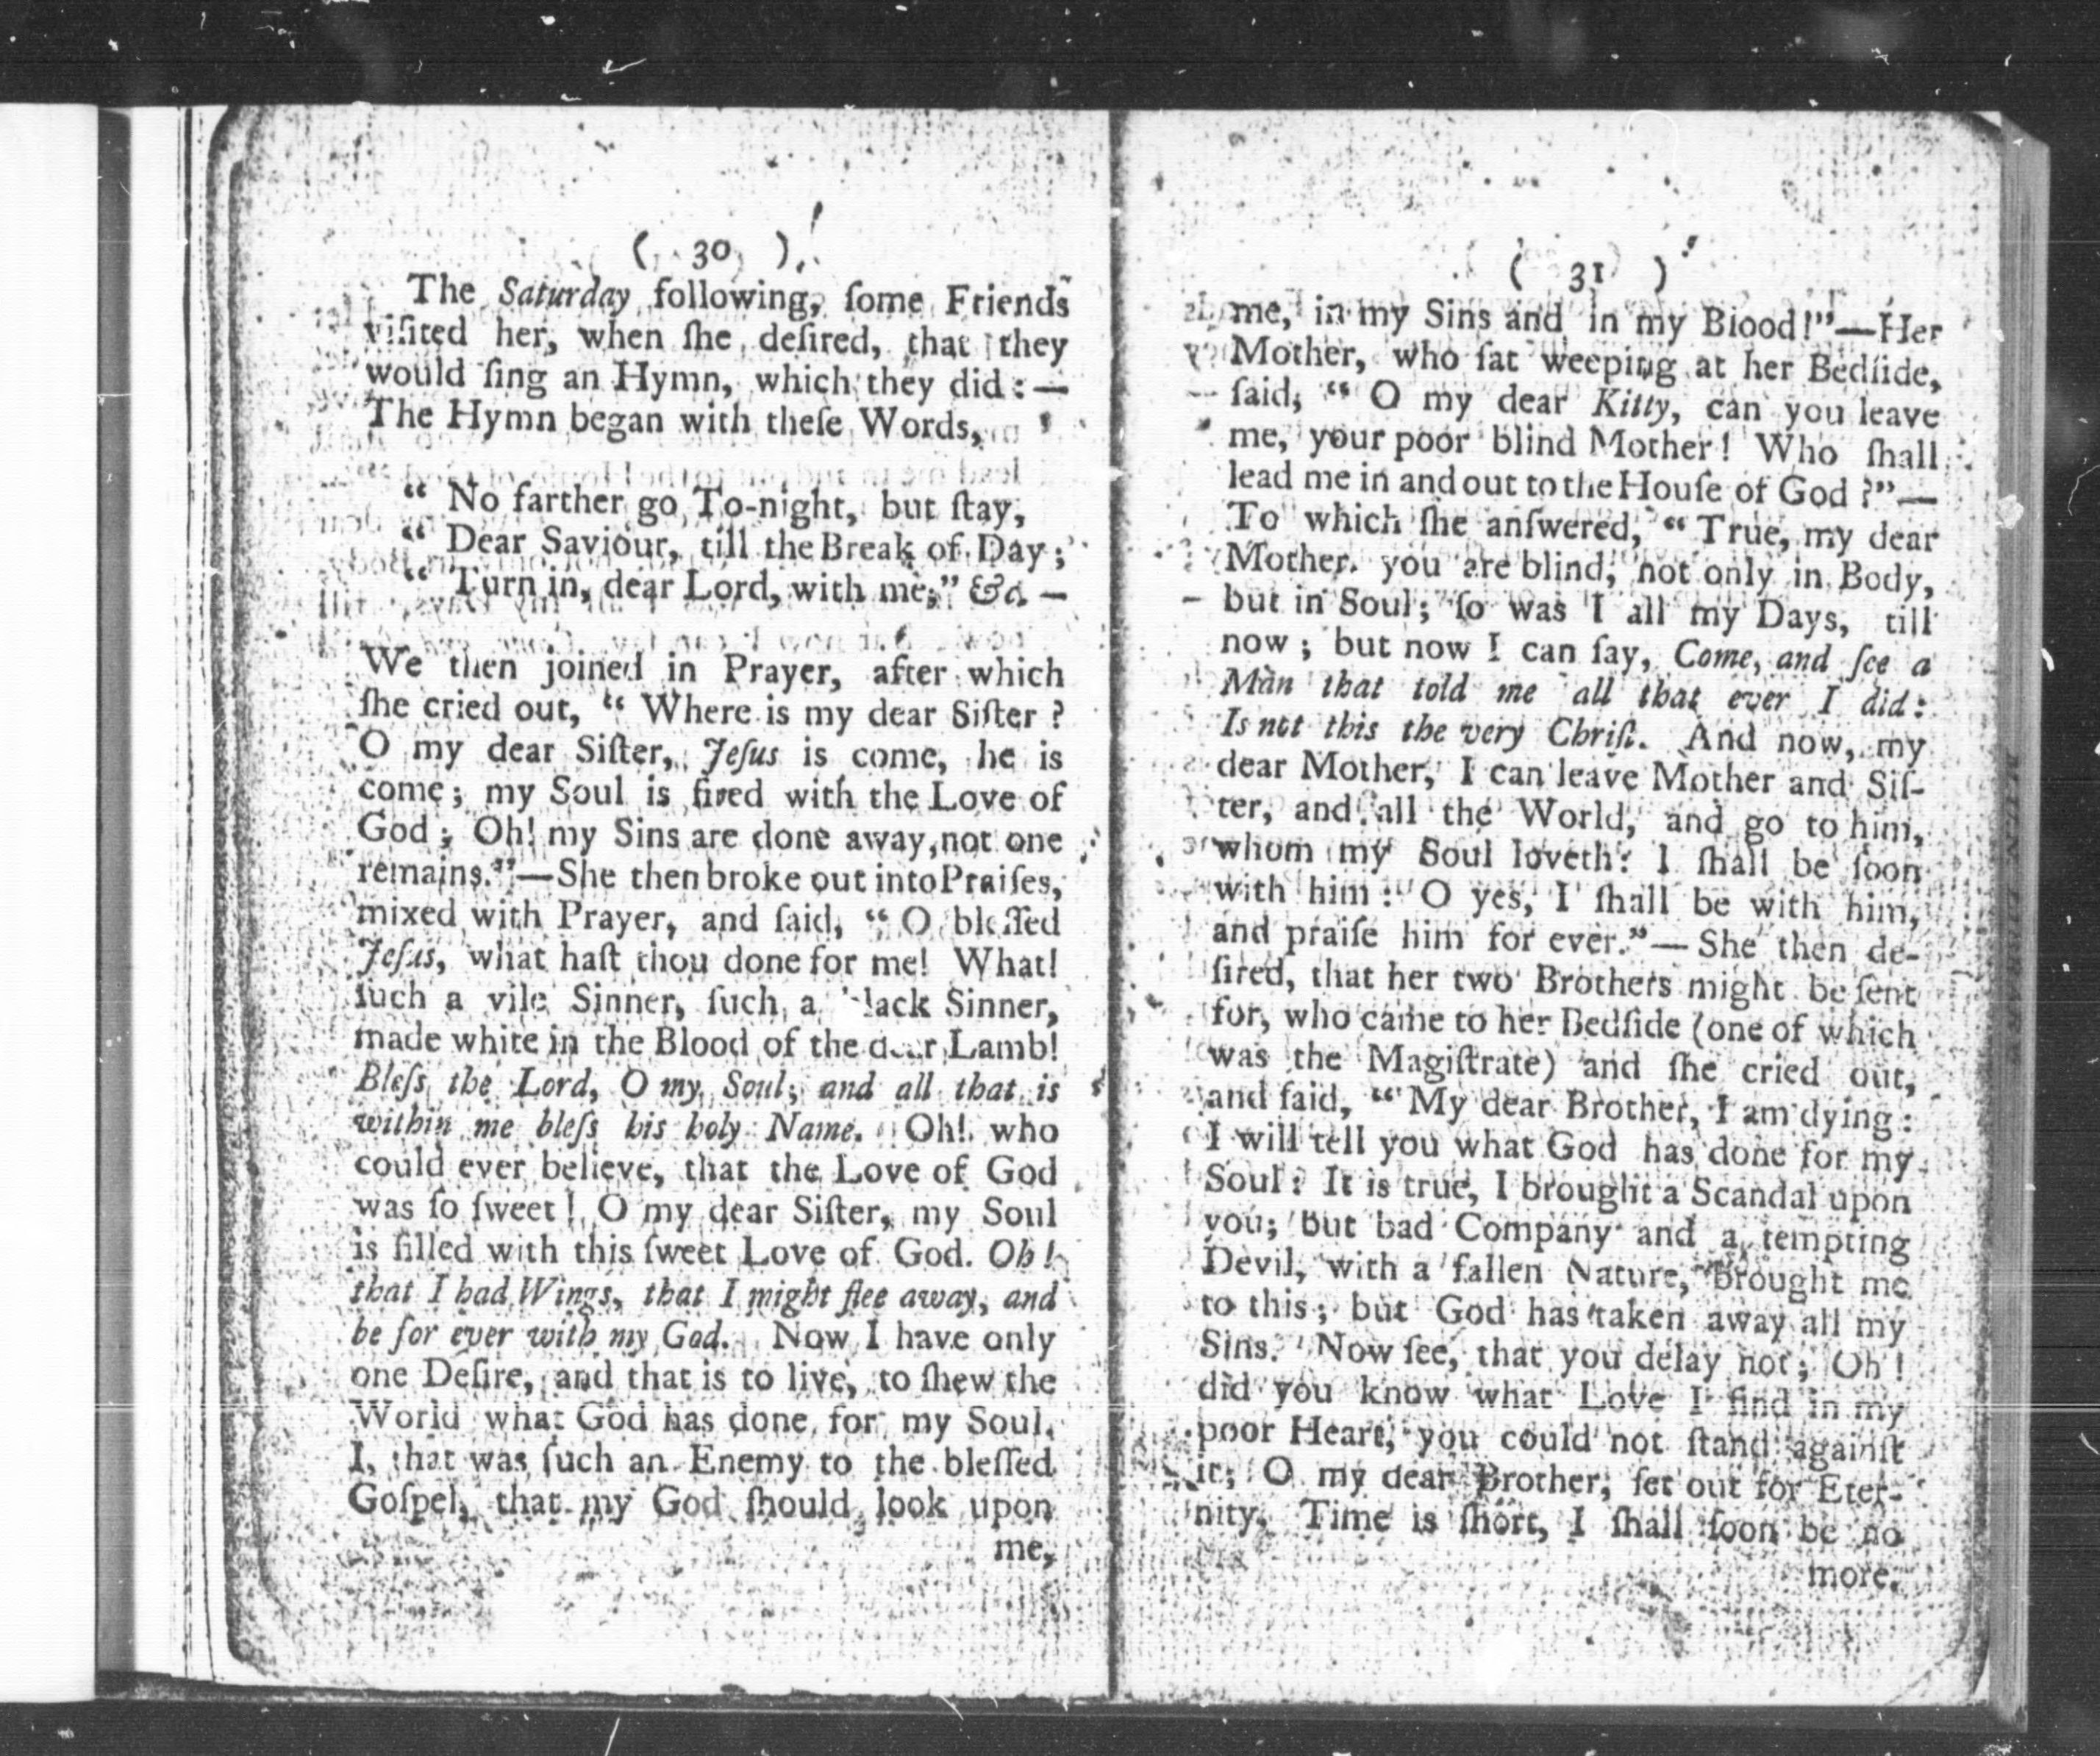 ( 30 )
The Saturday following, ſome Friends
viſited her, when ſhe deſired, that they
would ſing an Hymn, which they did : —
The Hymn began with theſe Words,
“ No farther go To-night, but ſtay,
“ Dear Saviour, till the Break of Day ;
“ Turn in, dear Lord, with me,” &c. —
We then joined in Prayer, after which
ſhe cried out, “ Where is my dear Siſter ?
O my dear Siſter, Jeſus is come, he is
come; my Soul is fired with the Love of
God ; Oh! my Sins are done away, not one
remains.”—She then broke out into Praiſes,
mixed with Prayer, and ſaid, “ O bleſſed
Jeſus, what haſt thou done for me! What!
ſuch a vile Sinner, ſuch a black Sinner,
made white in the Blood of the dear Lamb!
Bleſs the Lord, O my Soul; and all that is
within me bleſs his holy Name. Oh! who
could ever believe, that the Love of God
was ſo ſweet! O my dear Siſter, my Soul
is filled with this ſweet Love of God. Oh!
that I had Wings, that I might flee away, and
be for ever with my God. Now I have only
one Deſire, and that is to live, to ſhew the
World what God has done for my Soul.
I, that was ſuch an Enemy to the bleſſed
Goſpel, that my God ſhould look upon
me,
( 31 )
me, in my Sins and in my Blood!”—Her
Mother, who ſat weeping at her Bedſide,
ſaid, “ O my dear Kitty, can you leave
me, your poor blind Mother! Who ſhall
lead me in and out to the Houſe of God ?”—
To which ſhe anſwered, “ True, my dear
Mother, you are blind, not only in Body,
but in Soul; ſo was I all my Days, till
now ; but now I can ſay, Come, and ſee a
Man that told me all that ever I did:
Is not this the very Chriſt. And now, my
dear Mother, I can leave Mother and Siſ-
ter, and all the World, and go to him,
whom my Soul loveth: I ſhall be ſoon
with him: O yes, I ſhall be with him,
and praiſe him for ever.”— She then de-
ſired, that her two Brothers might be ſent
for, who came to her Bedſide (one of which
was the Magiſtrate) and ſhe cried out,
and ſaid, “ My dear Brother, I am dying :
I will tell you what God has done for my
Soul: It is true, I brought a Scandal upon
you; but bad Company and a tempting
Devil, with a fallen Nature, brought me
to this ; but God has taken away all my
Sins. Now ſee, that you delay not; Oh!
did you know what Love I find in my
poor Heart, you could not ſtand againſt
it; O my dear Brother, ſet out for Eter-
nity. Time is ſhort, I ſhall ſoon be no
more.